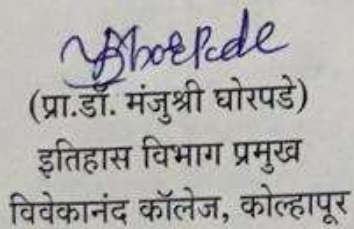 (प्रा.डॉ. मंजुश्री घोरपडे)
इतिहास विभाग प्रमुख
विवेकानंद कॉलेज, कोल्हापूर